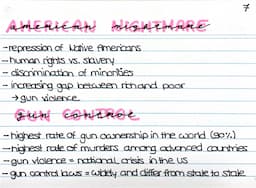 7
AMERICAN NIGHTMARE
-repression of Native Americans
-human rights vs. slavery
-discrimination of minorities
-increasing gap between rich and poor
→gun violence
GUN CONTROL
-highest rate of gun ownership in the world (90%)
-highest rate of murders among advanced countries
-gun violence = national crisis in the US
-gun control laws = widely and differ from state to state